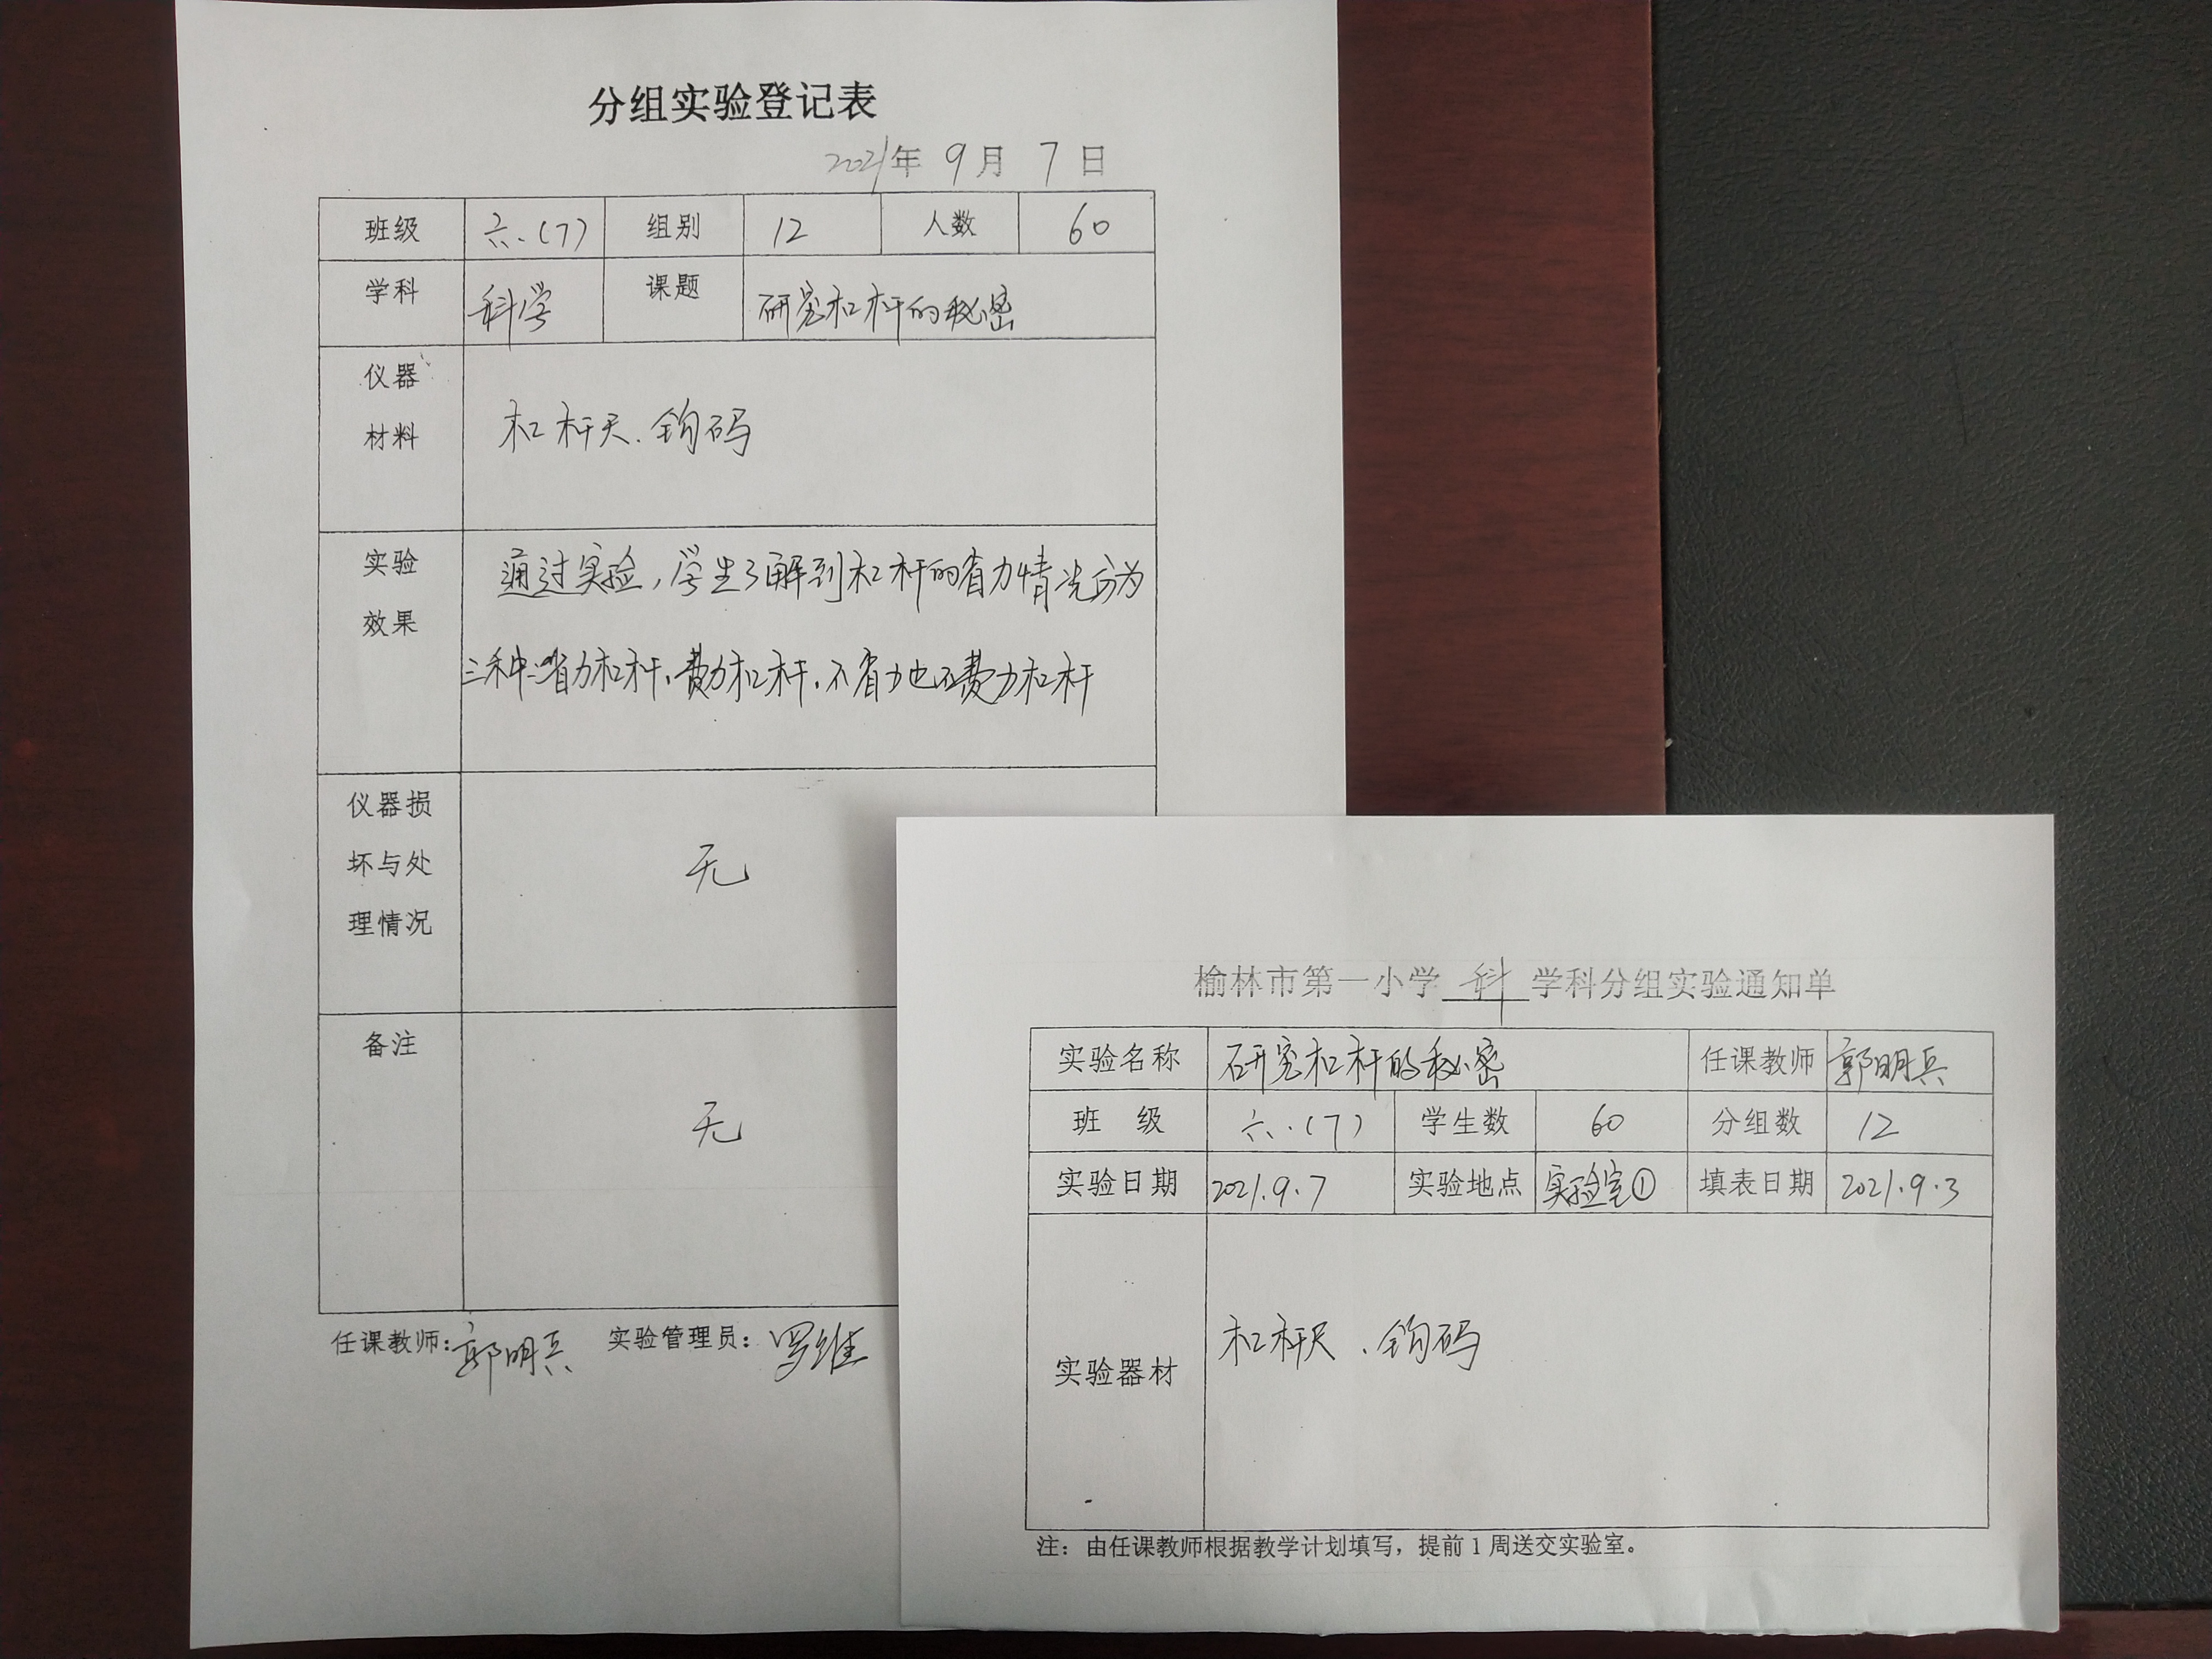 分组实验登记表
2021年 9月 7日
班级 六.(7) 组别 12 人数 60
学科 科学 课题 研究杠杆的秘密
仪器
材料
杠杆尺.钩码
实验
效果
通过实验,学生了解到杠杆的省力情况分为
三种:省力杠杆、费力杠杆、不省力也不费力杠杆
仪器损
坏与处
理情况
无
备注
无
任课教师:郭明兵 实验管理员:罗维
榆林市第一小学 科 学科分组实验通知单
实验名称 研究杠杆的秘密 任课教师 郭明兵
班 级 六.(7) 学生数 60 分组数 12
实验日期 2021.9.7 实验地点 实验室① 填表日期 2021.9.3
实验器材 杠杆尺、钩码
注：由任课教师根据教学计划填写，提前1周送交实验室。